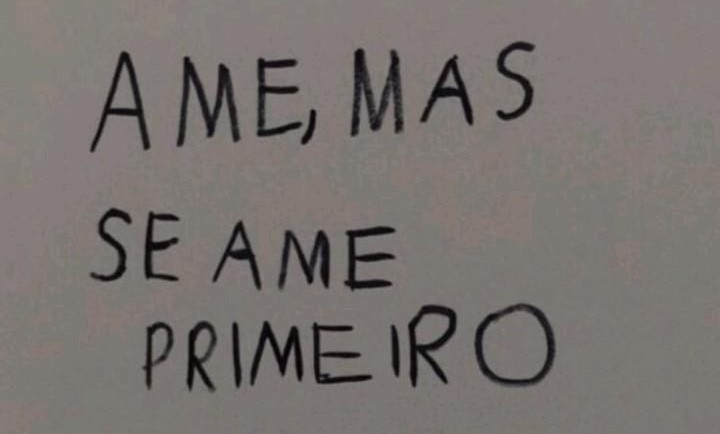 AME, MAS
SE AME
PRIMEIRO